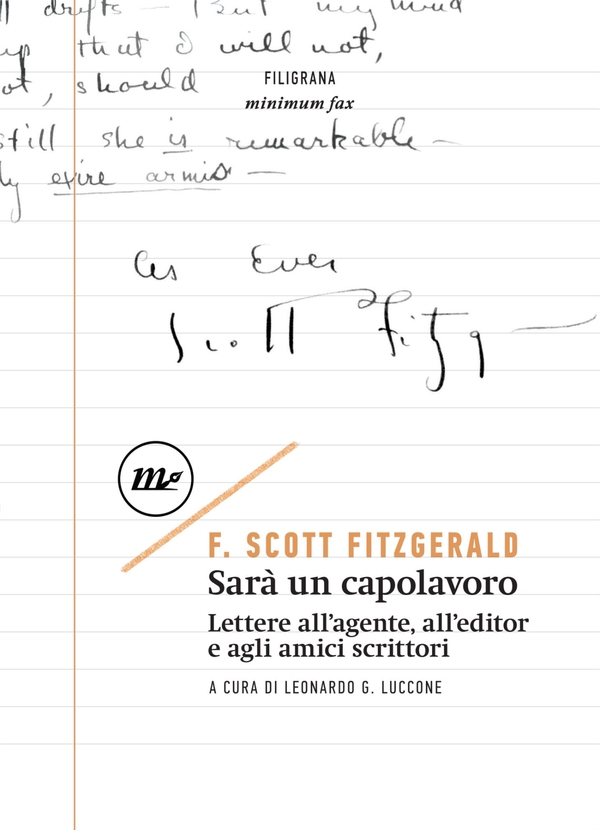 ll drifts — But my mind
up that I will not,
ot, should
FILIGRANA
minimum fax
still she is remarkable —
ly
As Ever
Scott Fitzg
m
F. SCOTT FITZGERALD
Sarà un capolavoro
Lettere all’agente, all’editor
e agli amici scrittori
A CURA DI LEONARDO G. LUCCONE